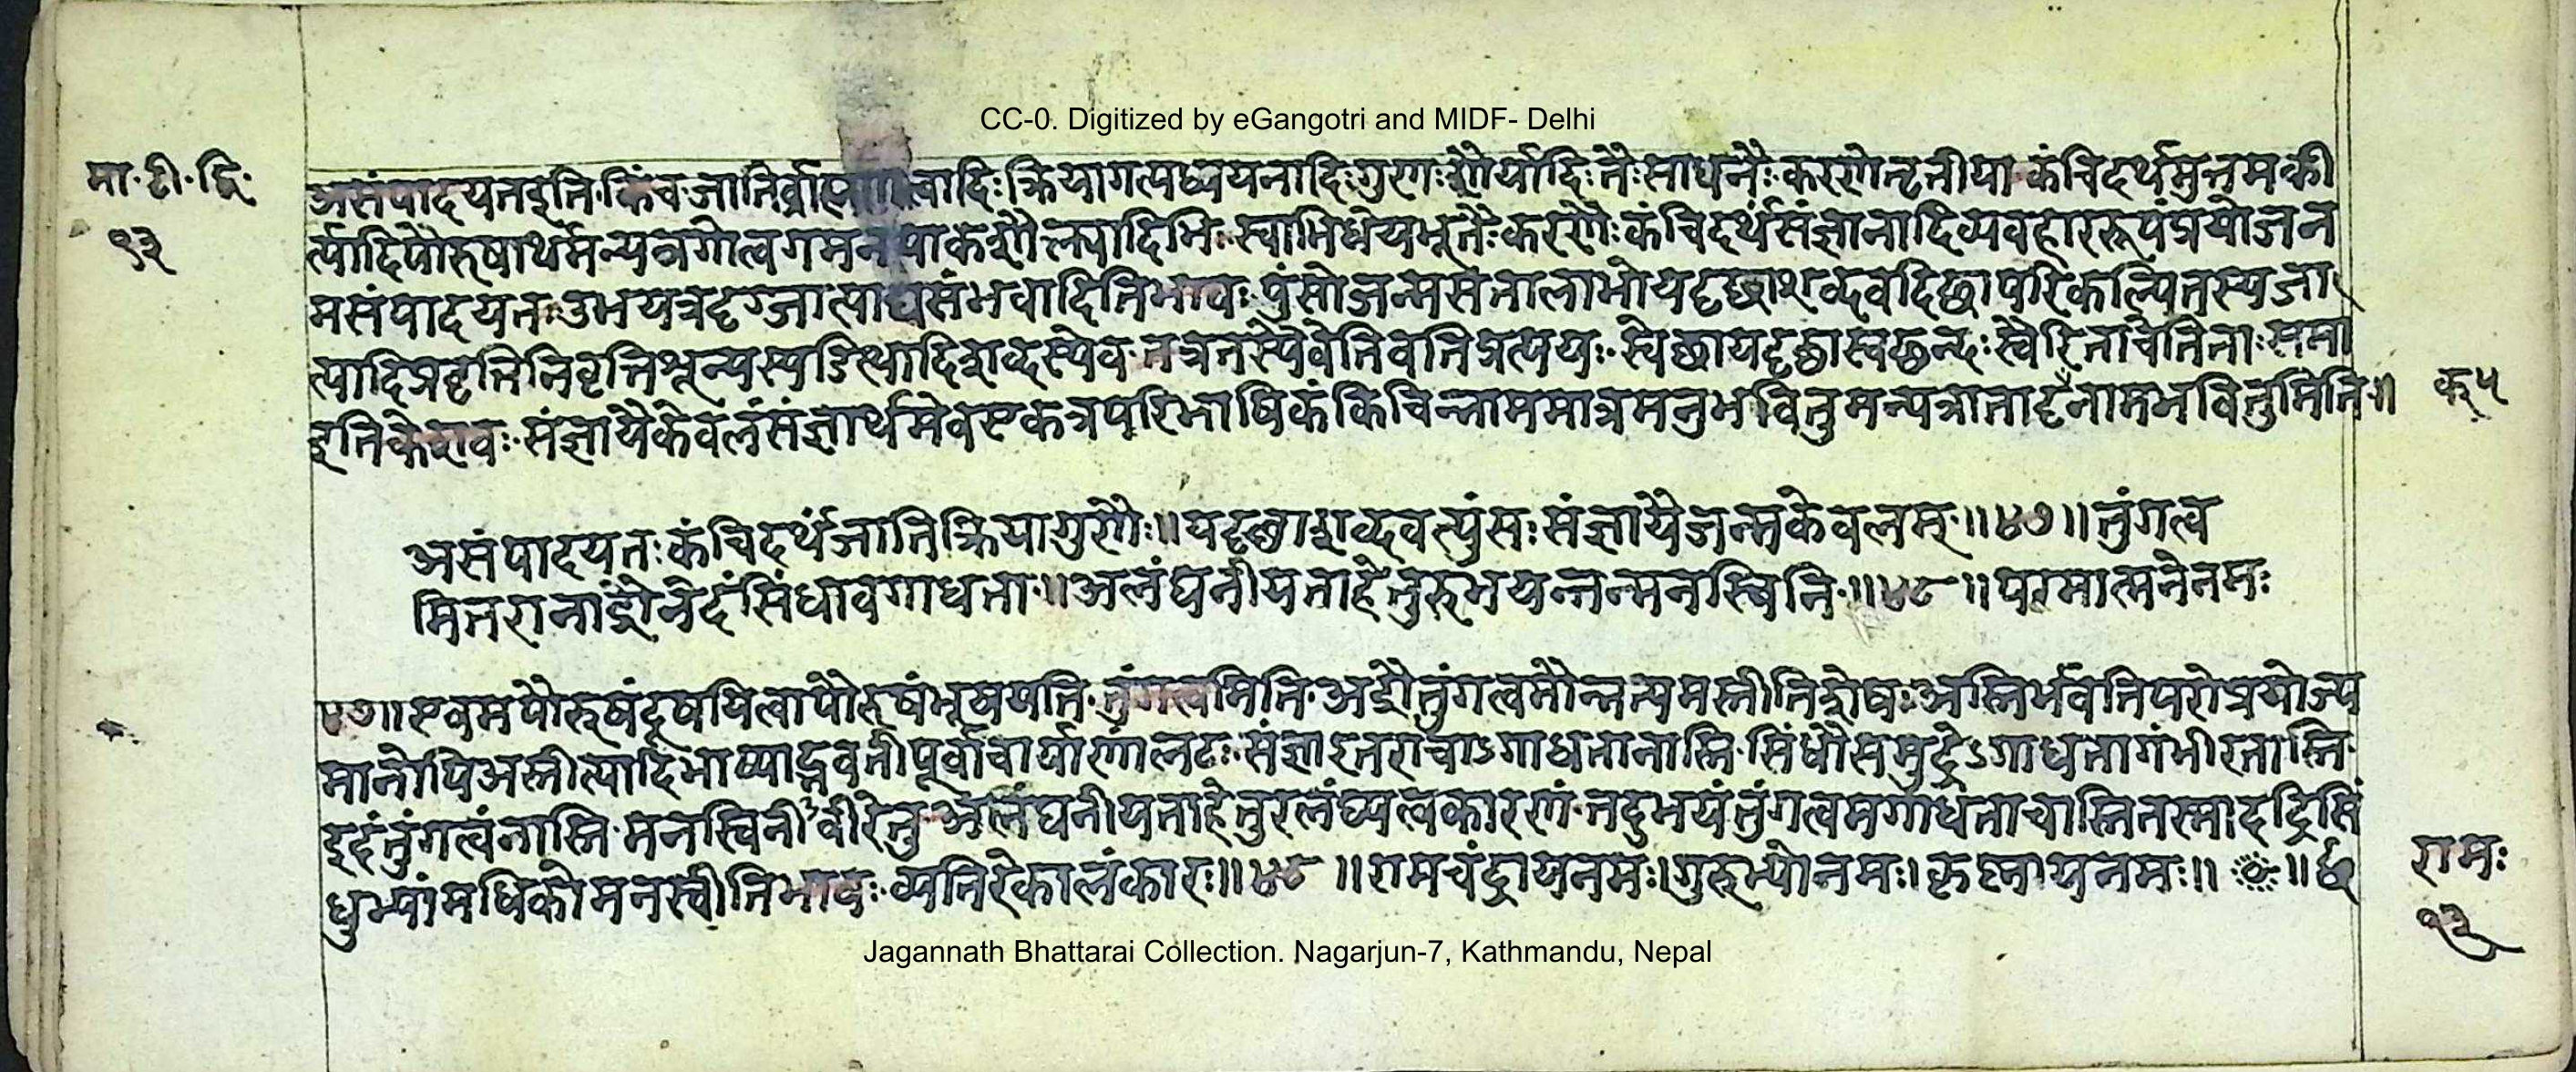 CC-0. Digitized by eGangotri and MIDF- Delhi
मा. टी. द्वि.
१३
असंपादयत इति. किंच जातिर्ब्राह्मणत्वादिः क्रियागत्यध्ययनादिः गुणः शौर्यादिः तैः साधनैः करणे तृतीया कंचिदर्थमुत्तमकी
र्त्यादिपौरुषार्थमन्यत्र गोत्वगमनपाकशौक्ल्यादिभिः स्वाभिधेयभूतैः करणैः कंचिदर्थं संज्ञानादिव्यवहाररूपं प्रयोजन
मसंपादयतः उभयत्र दृग्जात्याद्यसंभवादिति भावः पुंसो जन्म सत्तालाभो यदृच्छाशब्दवदिच्छापरिकल्पितस्य जा
त्यादिप्रवृत्तिनिवृत्तिशून्यस्य डित्थादिशब्दस्येव. तत्र तस्येवेति वतिप्रत्ययः. स्वेच्छा यदृच्छा स्वच्छन्दः स्वैरिता चेति ताः समा
इति केशवः. संज्ञायै केवलं संज्ञार्थमेव एकत्र परिभाषिकं किंचिन्नाममात्रमनुभवितुमन्यत्रातादृङ्नाम भवितुमिति॥
क्५
असंपादयतः कंचिदर्थं जातिक्रियागुणैः॥ यदृच्छाशब्दवत्पुंसः संज्ञायै जन्म केवलम्॥४७॥ तुंगत्व
मितरा नाद्रौ नेदं सिंधावगाधता॥ अलंघनीयताहेतुरुभयन्तन्मनस्विनि॥४८॥ परमात्मने नमः
४७॥ एवमपौरुषं दूषयित्वा पौरुषं भूषयति. तुंगत्वमिति. अद्रौ तुंगत्वमौन्नत्यमस्तीति शेषः अस्तिर्भवंतिपरोऽप्रयोज्य
मानोपि अस्तीत्यादि भाष्याद्भवतीपूर्वाचार्याणां लटः संज्ञा इतरा चाऽगाधता नास्ति. सिंधौ समुद्रेऽगाधता गंभीरतास्ति
इदं तुंगत्वं नास्ति. मनस्विनी वीरे तु अलंघनीयताहेतुरलंघ्यत्वकारणं. तदुभयं तुंगत्वमगाधता चास्ति तस्मादद्रिसिं
धुभ्यांमधिको मनस्वीति भावः. व्यतिरेकालंकारः॥४८॥ रामचंद्राय नमः। गुरुभ्यो नमः। कृष्णाय नमः॥ ॥ छ
रामः
१३
Jagannath Bhattarai Collection. Nagarjun-7, Kathmandu, Nepal